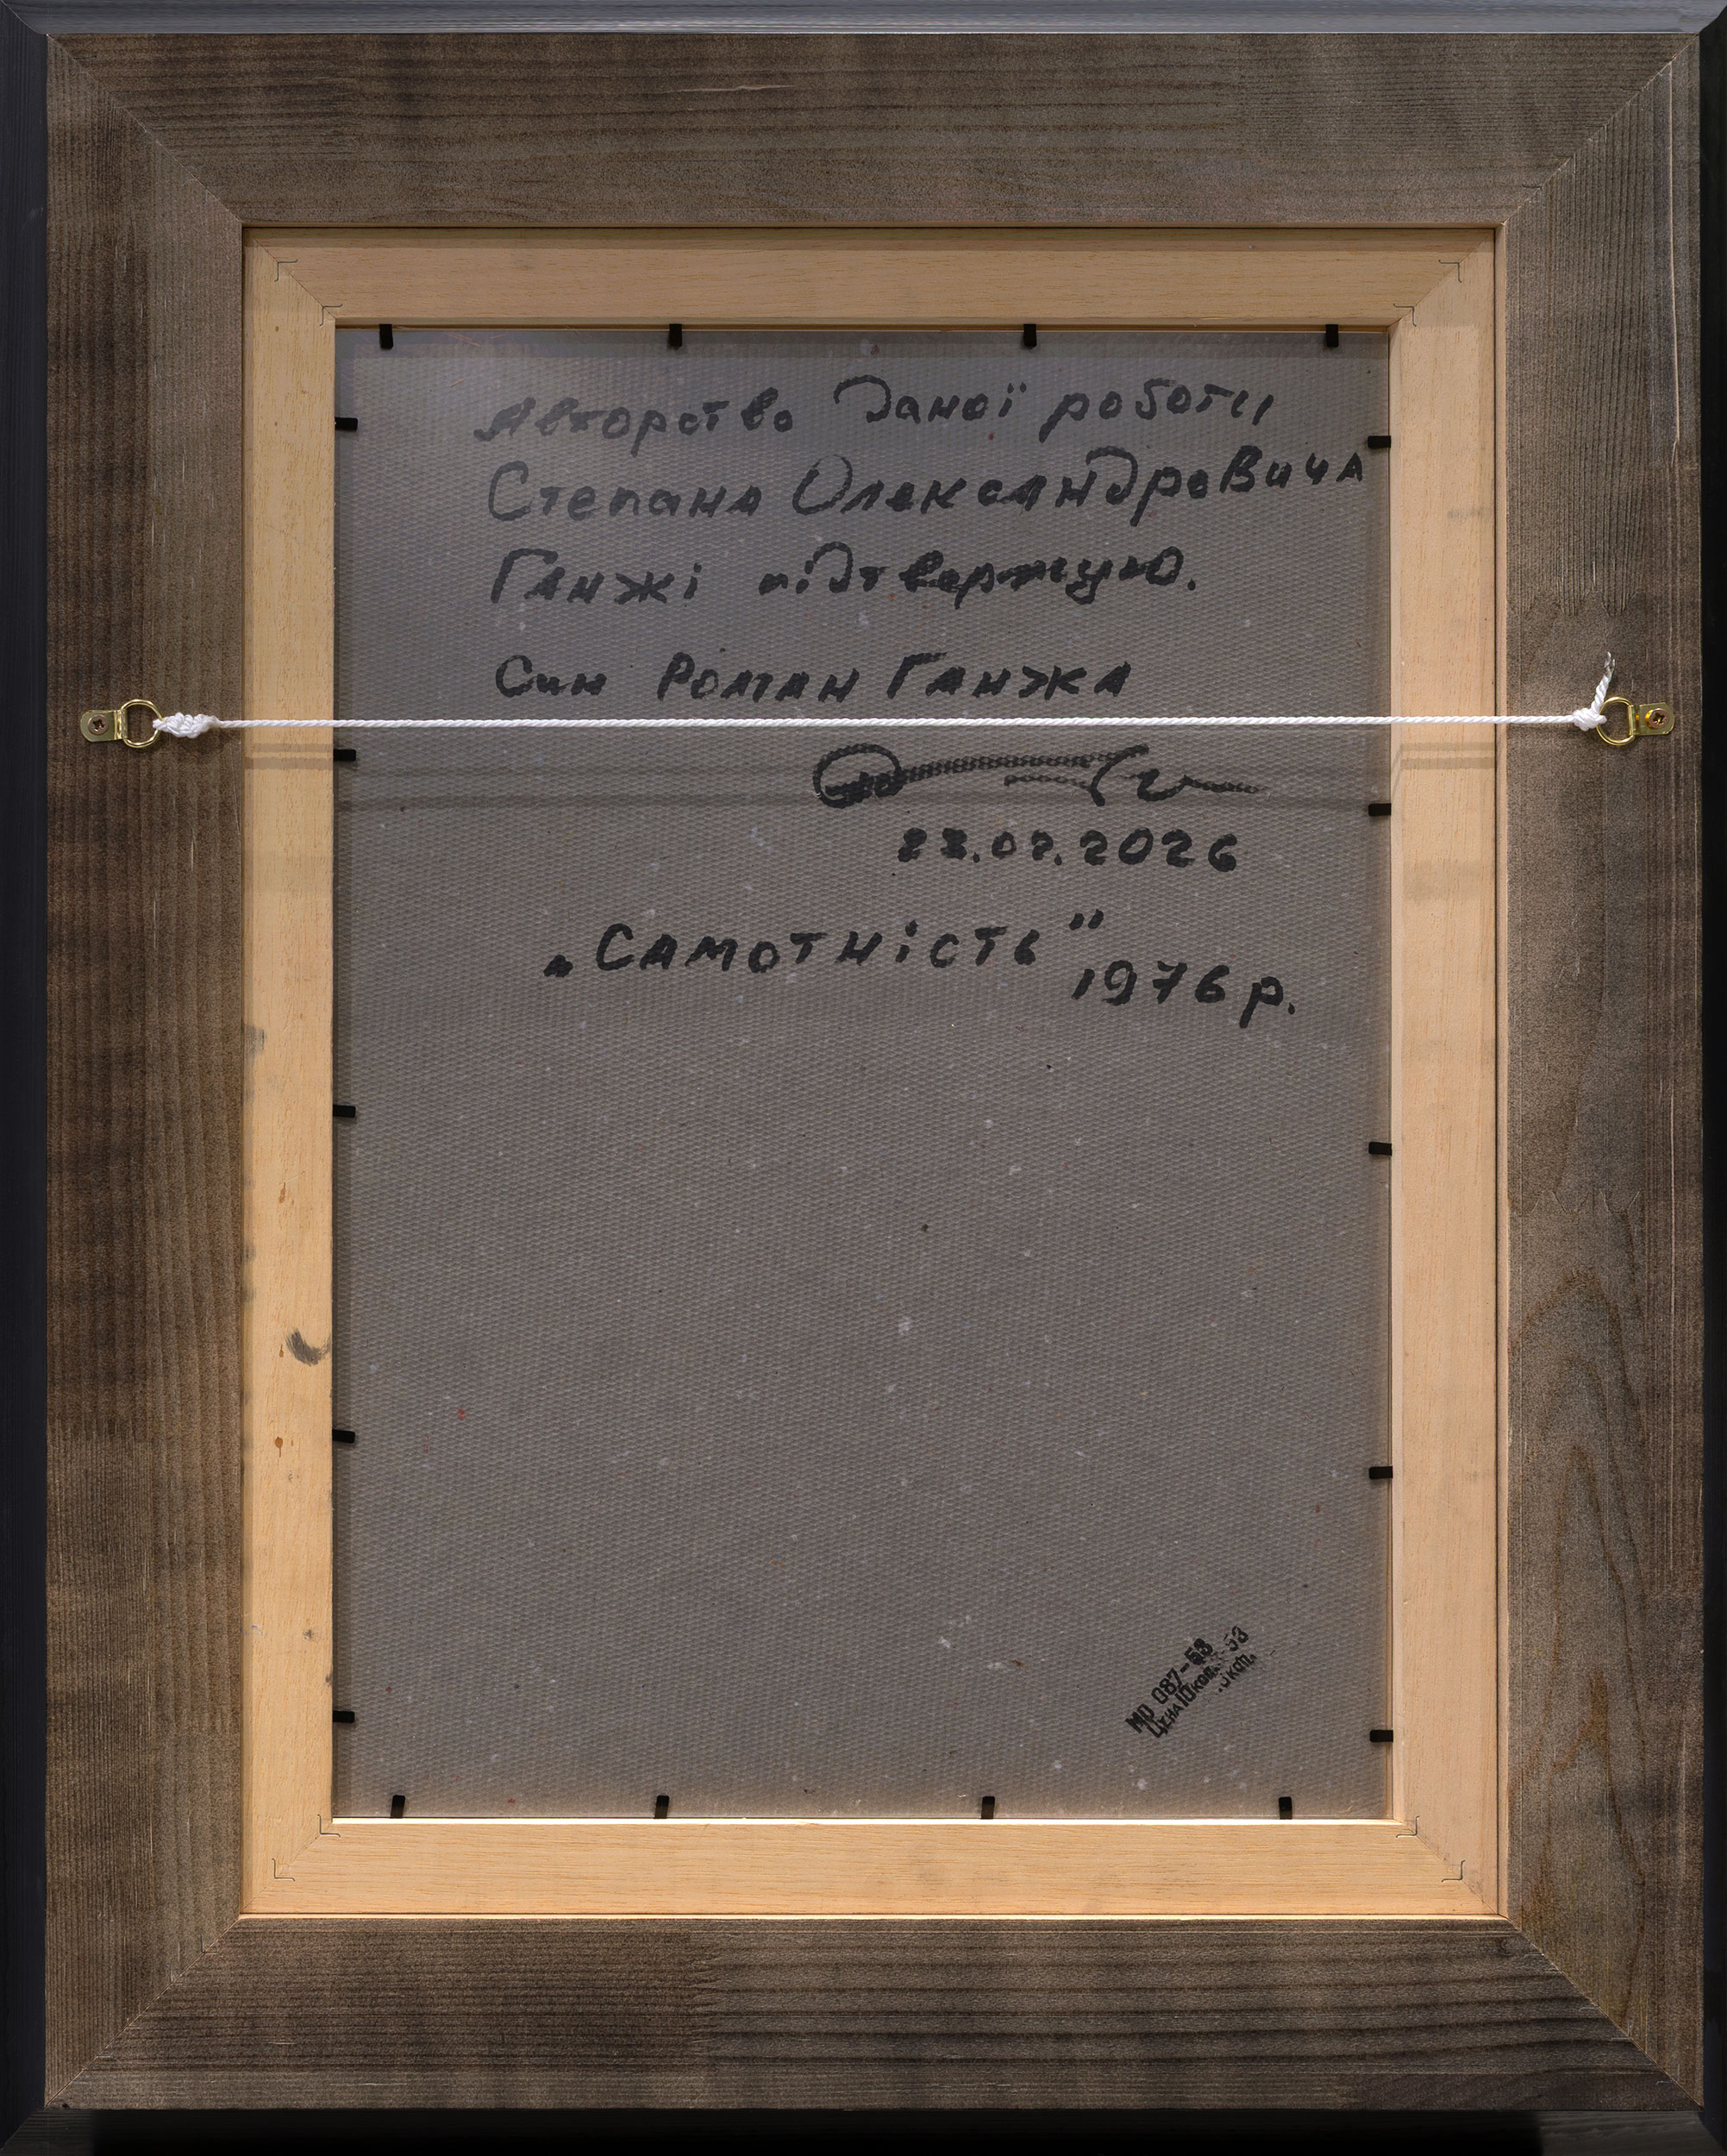 Авторство даної роботи
Степана Олександровича
Ганжі підтверджую.
Син Роман Ганжа
23.02.2026
„Самотність"
1976 р.
МР 087-58
Цена 10 коп.